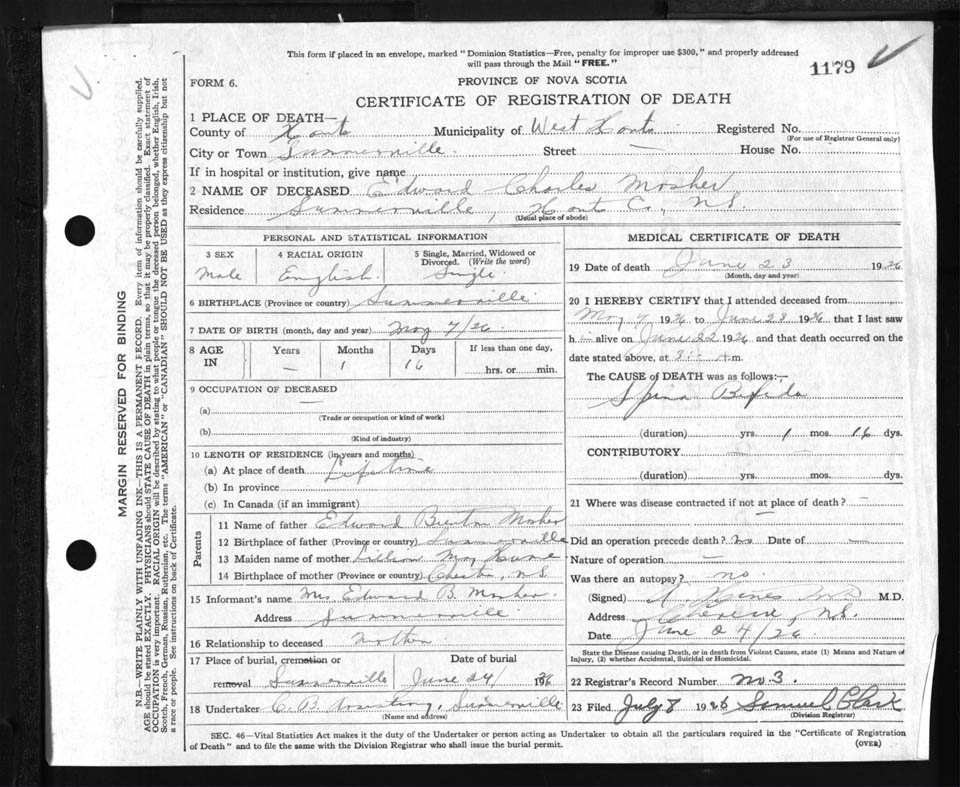 This form if placed in an envelope, marked "Dominion Statistics—Free, penalty for improper use $300," and properly addressed
will pass through the Mail "FREE."
1179
FORM 6.
PROVINCE OF NOVA SCOTIA
CERTIFICATE OF REGISTRATION OF DEATH
1 PLACE OF DEATH—
County of Hants Municipality of West Hants Registered No.
(For use of Registrar General only)
City or Town Summerville. Street — House No.
If in hospital or institution, give name
2 NAME OF DECEASED Edward Charles Mosher
Residence Summerville, Hants Co., N.S.
(Usual place of abode)
PERSONAL AND STATISTICAL INFORMATION
3 SEX 4 RACIAL ORIGIN 5 Single, Married, Widowed or
Divorced. (Write the word)
Male English. Single
6 BIRTHPLACE (Province or country) Summerville
7 DATE OF BIRTH (month, day and year) May 7/26
8 AGE IN Years Months Days If less than one day,
— 1 16 hrs. or min.
9 OCCUPATION OF DECEASED
(a) —
(Trade or occupation or kind of work)
(b)
(Kind of industry)
10 LENGTH OF RESIDENCE (in years and months)
(a) At place of death Lifetime
(b) In province
(c) In Canada (if an immigrant)
Parents
11 Name of father Edward Burton Mosher
12 Birthplace of father (Province or country) Summerville
13 Maiden name of mother Lillian May
14 Birthplace of mother (Province or country) Chester, N.S.
15 Informant's name Mrs Edward B. Mosher
Address Summerville
16 Relationship to deceased Mother
17 Place of burial, cremation or Date of burial
removal Summerville June 24/ 1926
18 Undertaker C. B. Armstrong, Summerville
(Name and address)
MEDICAL CERTIFICATE OF DEATH
19 Date of death June 23 1926
(Month, day and year)
20 I HEREBY CERTIFY that I attended deceased from
May 7 1926 to June 23 1926 that I last saw
h alive on June 22 1926 and that death occurred on the
date stated above, at m.
The CAUSE of DEATH was as follows:—
Spina Bifida
(duration) yrs. 1 mos. 16 dys.
CONTRIBUTORY
(duration) yrs. mos. dys.
21 Where was disease contracted if not at place of death?
Did an operation precede death? No Date of —
Nature of operation —
Was there an autopsy? no.
(Signed) M.D.
Address N.S.
Date June 24/26
State the Disease causing Death, or in death from Violent Causes, state (1) Means and Nature of
Injury, (2) whether Accidental, Suicidal or Homicidal.
22 Registrar's Record Number No 3.
23 Filed July 8 1926 Samuel Clark
(Division Registrar)
SEC. 46—Vital Statistics Act makes it the duty of the Undertaker or person acting as Undertaker to obtain all the particulars required in the "Certificate of Registration
of Death" and to file the same with the Division Registrar who shall issue the burial permit.
(OVER)
MARGIN RESERVED FOR BINDING
N.B.—WRITE PLAINLY WITH UNFADING INK—THIS IS A PERMANENT RECORD. Every item of information should be carefully supplied.
AGE should be stated EXACTLY. PHYSICIANS should STATE CAUSE OF DEATH in plain terms, so that it may be properly classified. Exact statement of
OCCUPATION is very important. RACIAL ORIGIN will be described by stating to what people or tongue the deceased person belonged, whether English, Irish,
Scotch, French, German, Russian, Ruthenian, etc. The terms "AMERICAN" or "CANADIAN" SHOULD NOT BE USED as they express citizenship but not
a race or people. See instructions on back of Certificate.